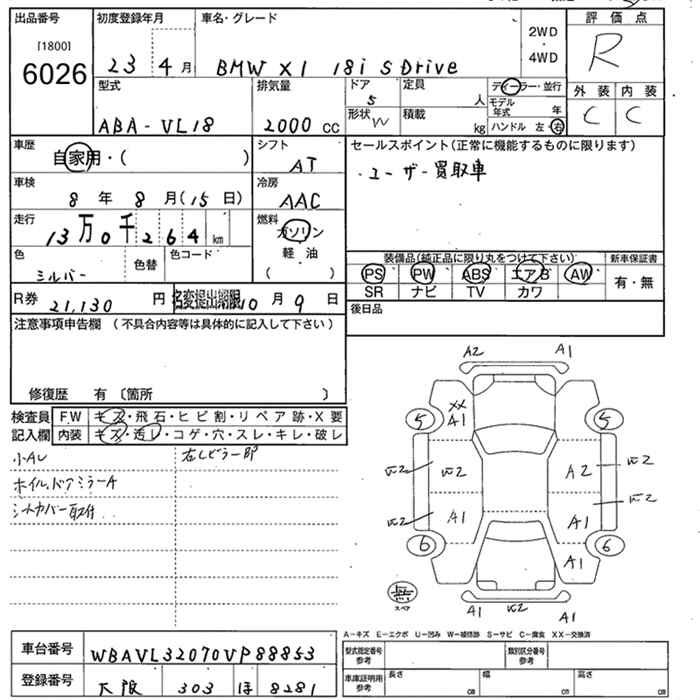 出品番号 初度登録年月 車名・グレード 評価点
[1800]
6026 23 4月 BMW X1 18i SDrive 2WD ・ 4WD R
型式 排気量 ドア 定員 ディーラー・並行 外装 内装
5 人 モデル年式 年
ABA-VL18 2000 cc 形状 W 積載 kg ハンドル 左・右 C C
車歴 自家用・( ) シフト AT セールスポイント(正常に機能するものに限ります)
車検 8年 8月(15日) 冷房 AAC ・ユーザー買取車
走行 13万0千264km 燃料 ガソリン
軽油
( )
色 シルバー 色替 色コード 装備品(純正品に限り丸をつけて下さい) 新車保証書
PS PW ABS エアB AW 有・無
SR ナビ TV カワ
R券 21,130円 名変提出期限 10月9日 後日品
注意事項申告欄 (不具合内容等は具体的に記入して下さい)
修復歴 有 〔箇所 〕
検査員 FW キズ・飛石・ヒビ割・リペア跡・X要
記入欄 内装 キズ・汚レ・コゲ・穴・スレ・キレ・破レ
小AU
ホイル、ドアミラーA
シートカバー取付
A2 A1
XX
A1
5 5
A2
A1 A1
6 6
A1
無
スペア
A1 A1
A-キズ E-エクボ U-凹み W-補修跡 S-サビ C-腐食 XX-交換済
車台番号 WBAVL32070VP88853 型式指定番号 参考 類別区分番号 参考
登録番号 大阪 303 ほ 8281 車庫証明用 参考 長さ cm 幅 cm 高さ cm